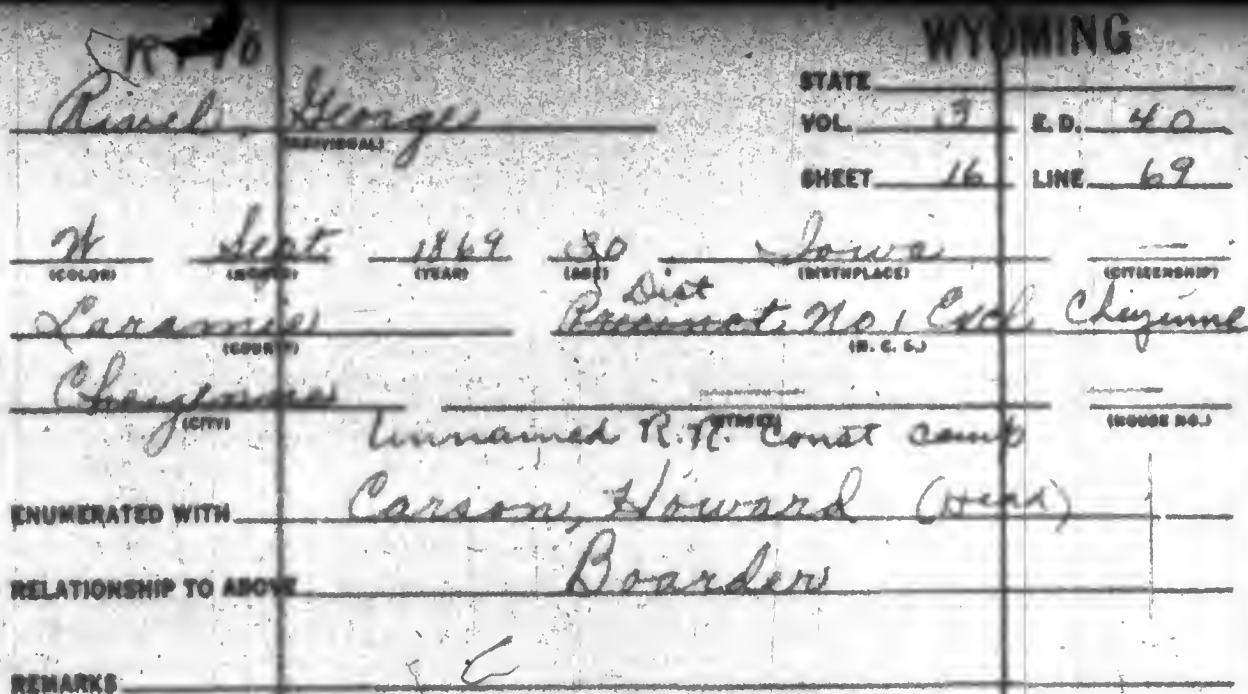 WYOMING
STATE
George
(INDIVIDUAL)
VOL. 3 E.D. 40
SHEET 16 LINE 69
W Sept 1869 30 Iowa
(COLOR) (MONTH) (YEAR) (AGE) (BIRTHPLACE) (CITIZENSHIP)
Dist
Laramie Precinct No 1 Excl Cheyenne
(COUNTY) (M. C. D.)
Cheyenne
(CITY) (STREET) (HOUSE NO.)
Unnamed R.R. Const camp
ENUMERATED WITH Carson, Howard (Head)
RELATIONSHIP TO ABOVE Boarder
REMARKS